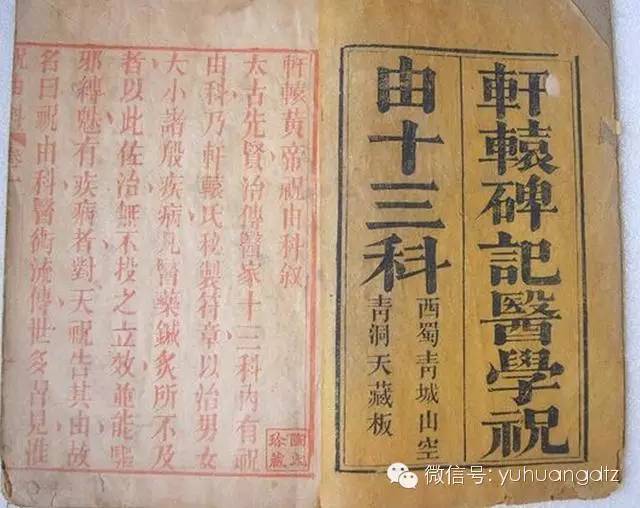 軒轅碑記醫學祝
由十三科
西蜀青城山空
青洞天藏板
軒轅黃帝祝由科敘
太古先賢治傳醫家十三科內有祝
由科乃軒轅氏秘製符章以治男女
大小諸般疾病凡醫藥鍼灸所不及
者以此佐治無不投之立效並能驅
邪縛魅有疾病者對天祝告其由故
名曰祝由科醫術流傳世多罕見惟
祝由科 卷一
珍藏
微信号: yuhuangdtz